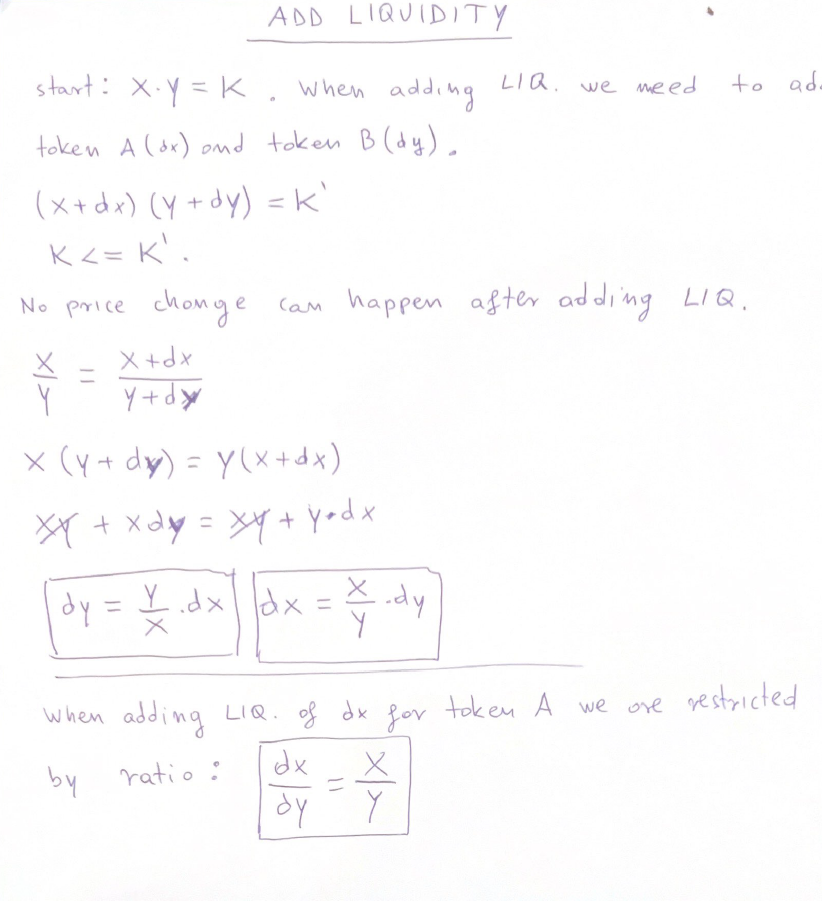 ADD LIQUIDITY
start: X·Y = K. When adding LIQ. we need to ad
token A (dx) and token B (dy).
(X+dx) (Y+dy) = K'
K <= K'.
No price change can happen after adding LIQ.
X/Y = X+dx/Y+dy
X (Y+dy) = Y(X+dx)
XY + Xdy = XY + Y·dx
dy = Y/X .dx dx = X/Y .dy
When adding LIQ. of dx for token A we are restricted
by ratio: dx/dy = X/Y